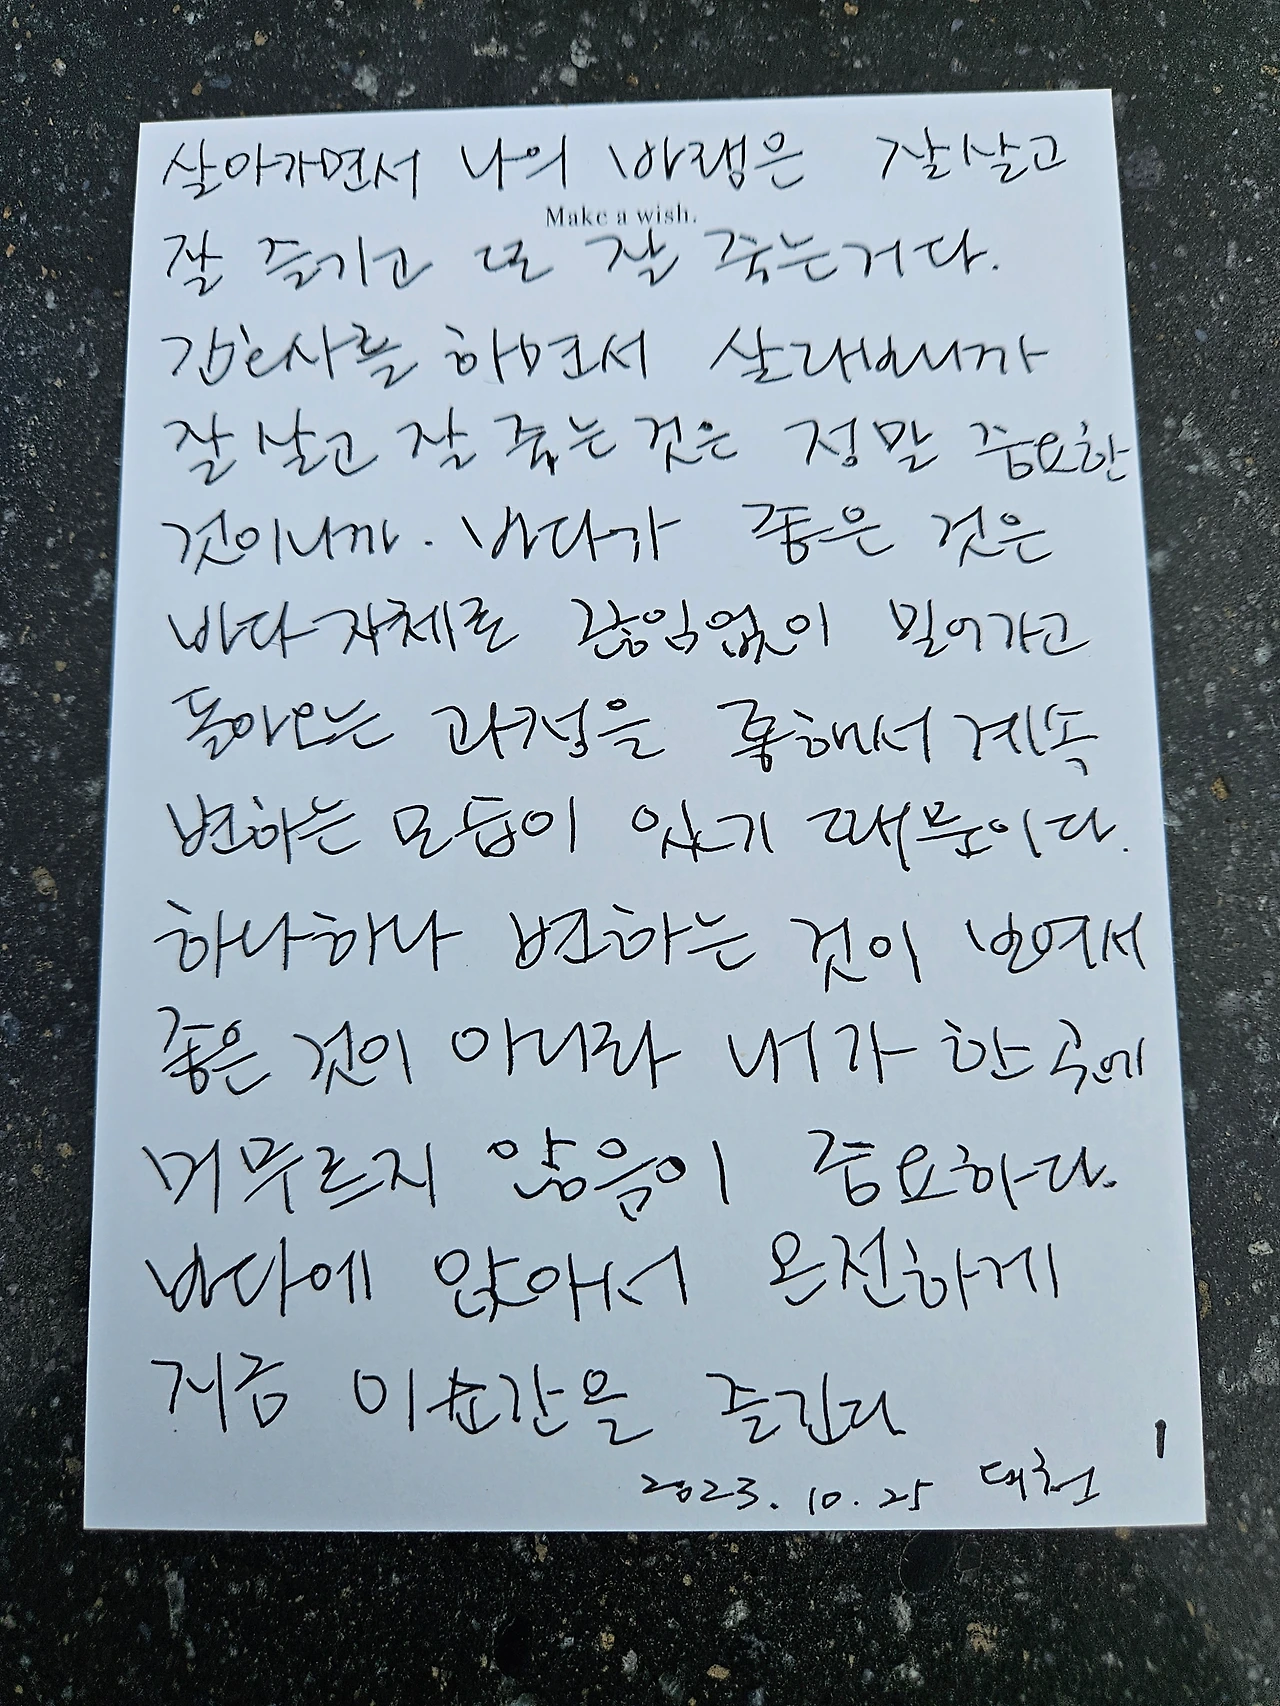 살아가면서 나의 바램은 잘살고
Make a wish.
잘 즐기고 또 잘 죽는거다.
감사를 하면서 살다보니까
잘 살고 잘 죽는 것은 정말 중요한
것이니까. 바다가 좋은 것은
바다 자체로 끊임없이 밀어가고
돌아오는 과정을 통해서 계속
변하는 모습이 있기 때문이다.
하나하나 변하는 것이 보여서
좋은 것이 아니라 내가 한 곳에
머무르지 않음이 중요하다.
바다에 앉아서 온전하게
지금 이 순간을 즐긴다
2023. 10. 25 대천